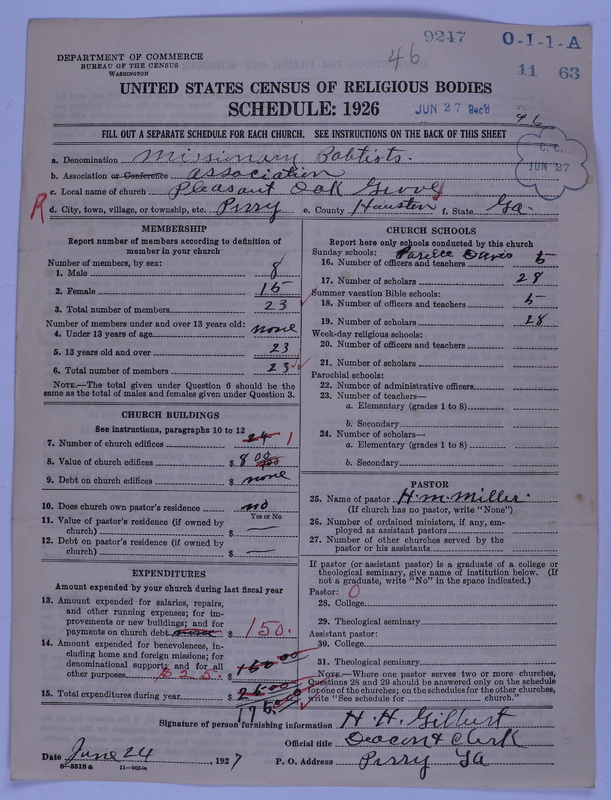 9247 O-1-1-A
46
11 63
DEPARTMENT OF COMMERCE
BUREAU OF THE CENSUS
WASHINGTON
UNITED STATES CENSUS OF RELIGIOUS BODIES
SCHEDULE: 1926
JUN 27 Rec'd
46
FILL OUT A SEPARATE SCHEDULE FOR EACH CHURCH. SEE INSTRUCTIONS ON THE BACK OF THIS SHEET
C. C.
JUN '27
a. Denomination Missionary Babtists.
b. Association or Conference association
c. Local name of church Pleasant Oak Grove
R d. City, town, village, or township, etc. Pirry e. County Houston f. State Ga.
MEMBERSHIP
Report number of members according to definition of member in your church
Number of members, by sex:
1. Male 8
2. Female 15
3. Total number of members 23
Number of members under and over 13 years old:
4. Under 13 years of age none
5. 13 years old and over 23
6. Total number of members 23
NOTE.—The total given under Question 6 should be the same as the total of males and females given under Question 3.
CHURCH BUILDINGS
See instructions, paragraphs 10 to 12
7. Number of church edifices 24 1
8. Value of church edifices $ 800
9. Debt on church edifices $ none
10. Does church own pastor's residence no
Yes or No
11. Value of pastor's residence (if owned by church) $ —
12. Debt on pastor's residence (if owned by church) $ —
EXPENDITURES
Amount expended by your church during last fiscal year
13. Amount expended for salaries, repairs, and other running expenses; for improvements or new buildings; and for payments on church debt none $ 150.
14. Amount expended for benevolences, including home and foreign missions; for denominational support; and for all other purposes $25. $ 150.00
15. Total expenditures during year $ 25.00
175.00
CHURCH SCHOOLS
Report here only schools conducted by this church
Sunday schools: Davis
16. Number of officers and teachers 5
17. Number of scholars 28
Summer vacation Bible schools:
18. Number of officers and teachers 5
19. Number of scholars 28
Week-day religious schools:
20. Number of officers and teachers
21. Number of scholars
Parochial schools:
22. Number of administrative officers
23. Number of teachers—
a. Elementary (grades 1 to 8)
b. Secondary
24. Number of scholars—
a. Elementary (grades 1 to 8)
b. Secondary
PASTOR
25. Name of pastor H. M. Miller.
(If church has no pastor, write "None")
26. Number of ordained ministers, if any, employed as assistant pastors
27. Number of other churches served by the pastor or his assistants
If pastor (or assistant pastor) is a graduate of a college or theological seminary, give name of institution below. (If not a graduate, write "No" in the space indicated.)
Pastor: O
28. College
29. Theological seminary
Assistant pastor:
30. College
31. Theological seminary
NOTE.—Where one pastor serves two or more churches, Questions 28 and 29 should be answered only on the schedule for one of the churches; on the schedules for the other churches, write "See schedule for church."
Signature of person furnishing information H. H. Gilbert
Official title Deacon & Clerk
Date June 24, 1927 P. O. Address Pirry Ga
8-5518a 11-9064a